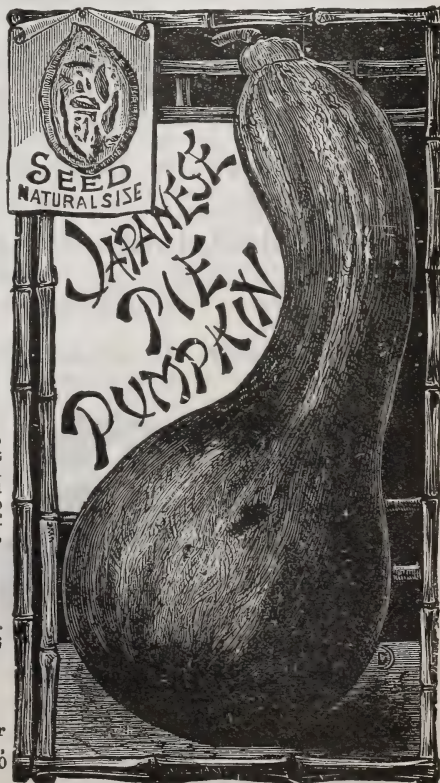 SEED
NATURAL SISE
JAPANESE
PIE
PUMPKIN